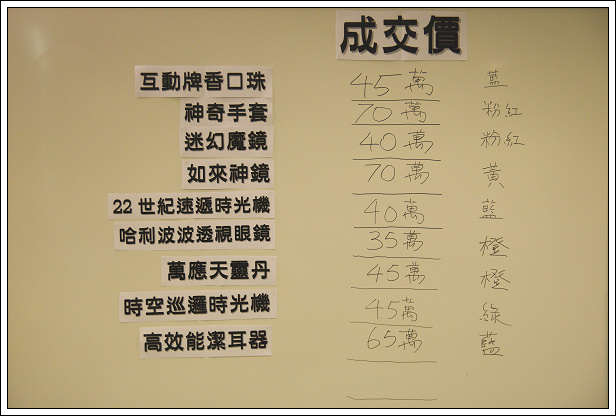 成交價
互動牌香口珠 45萬 藍
神奇手套 70萬 粉紅
迷幻魔鏡 40萬 粉紅
如來神鏡 70萬 黃
22世紀速遞時光機 40萬 藍
哈利波波透視眼鏡 35萬 橙
萬應天靈丹 45萬 橙
時空巡邏時光機 45萬 綠
高效能潔耳器 65萬 藍